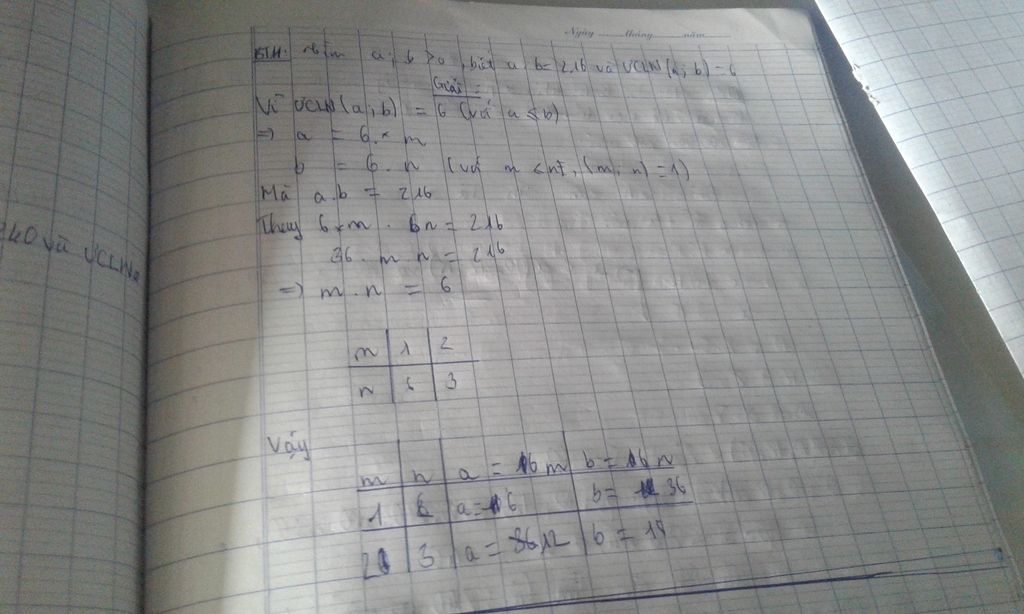 Ngày tháng năm
BT11: Tìm a; b > 0, biết a.b = 216 và ƯCLN(a; b) = 6
Giải:
Vì ƯCLN(a; b) = 6 (với a ≤ b)
=> a = 6 . m
b = 6 . n (với m < n; (m; n) = 1)
Mà a.b = 216
Thay 6.m . 6n = 216
36 . m . n = 216
=> m . n = 6
m 1 2
n 6 3
Vậy
m n a = 6m b = 6n
1 6 a = 6 b = 36
2 3 a = 12 b = 18
40 và ƯCLN